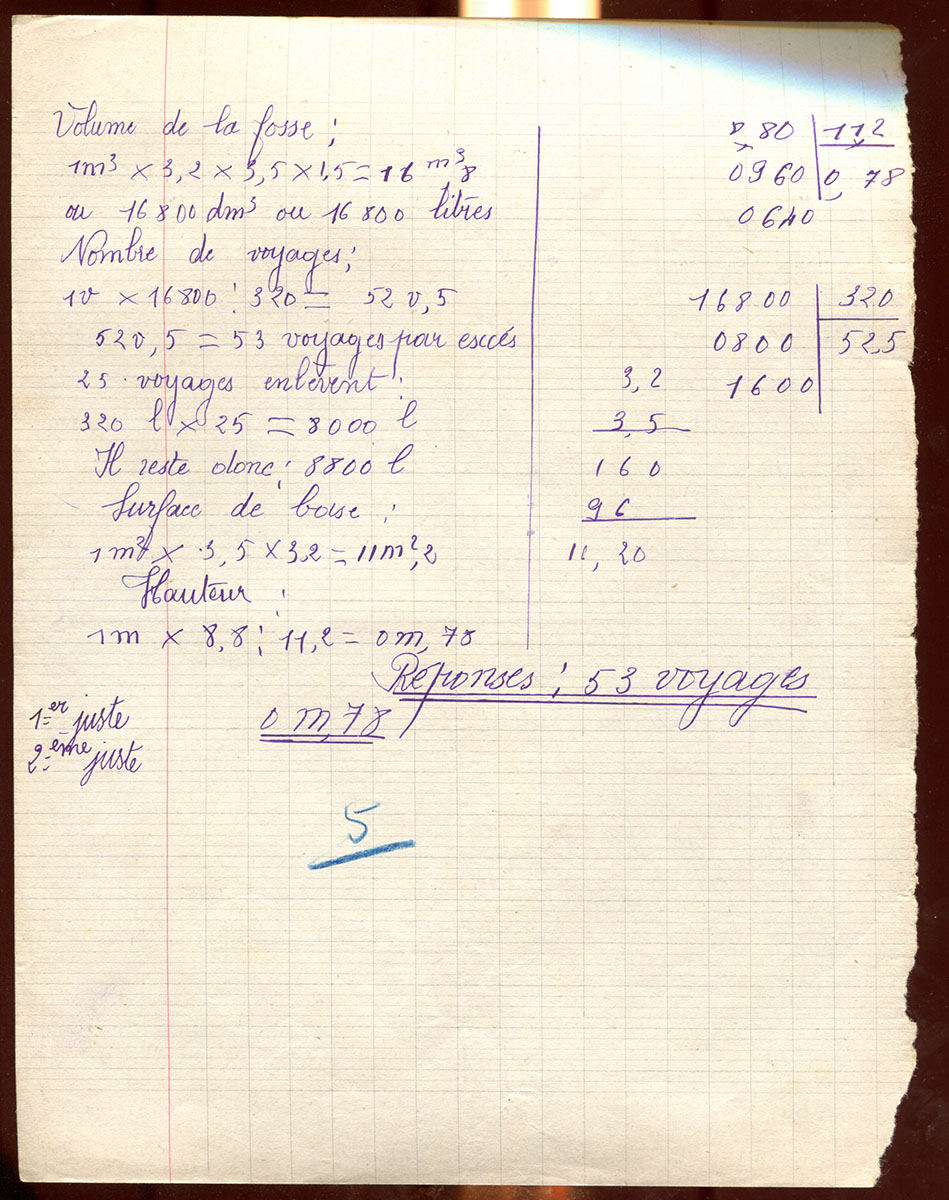 Volume de la fosse :
1m³ × 3,2 × 3,5 × 1,5 = 16 m³,8
ou 16800 dm³ ou 16 800 litres
Nombre de voyages :
1v × 16800 : 320 = 52 v,5
52v,5 = 53 voyages par excés
25 voyages enlèvent :
320 l × 25 = 8000 l
Il reste donc : 8800 l
Surface de base :
1m² × 3,5 × 3,2 = 11m²,2
Hauteur :
1m × 8,8 : 11,2 = 0m,78
Réponses : 53 voyages
0m,78
1er juste
2ème juste
5
8 80 11,2
0960 0,78
0640
16800 320
0800 52,5
1600
3,2
3,5
160
96
11,20